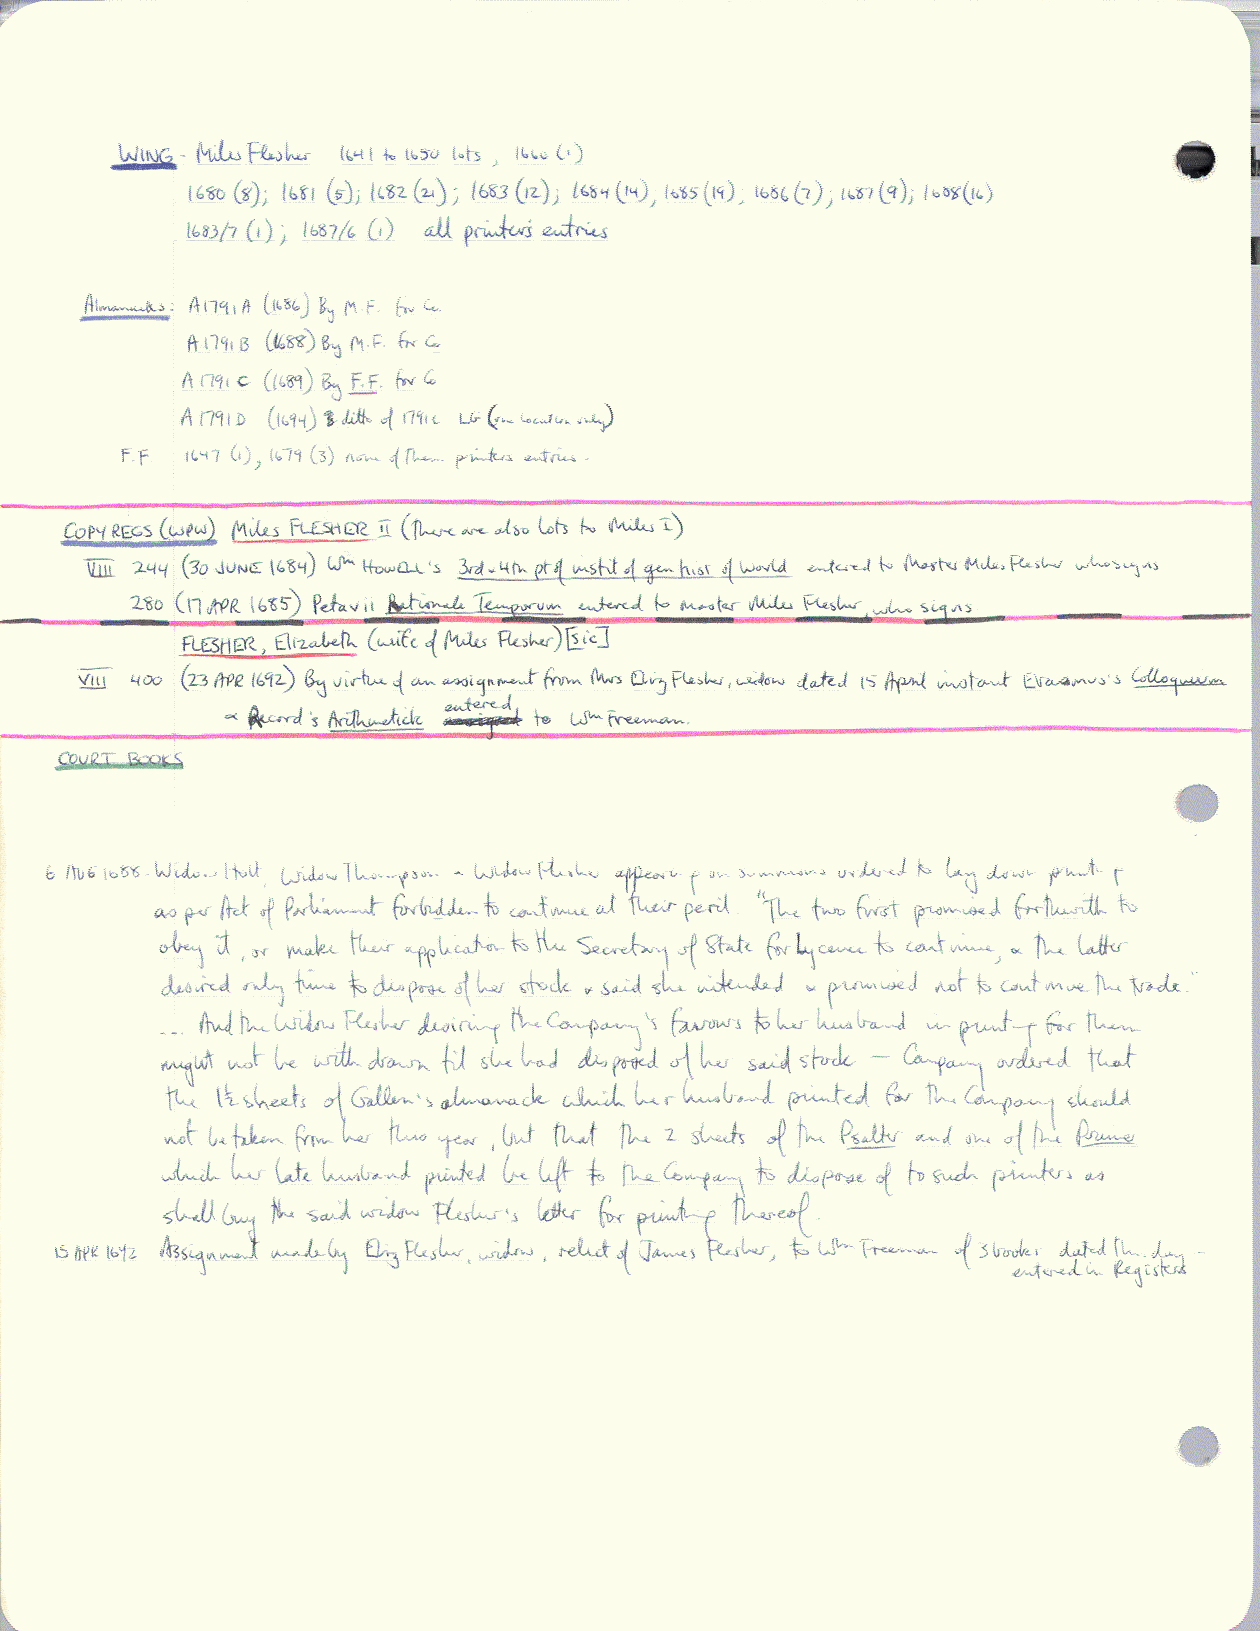 WING - Miles Flesher 1641 to 1650 lots, 1660 (1)
1680 (8); 1681 (5); 1682 (21); 1683 (12); 1684 (14), 1685 (19); 1686 (7); 1687 (9); 1688 (16)
1683/7 (1); 1687/6 (1) all printer's entries
Almanacks: A1791A (1686) By M.F. for Co.
A1791B (1688) By M.F. for Co
A1791C (1689) By F.F. for Co
A1791D (1694) ditto of 1791C (one location only)
F.F 1647 (1), 1679 (3) none of them printers entries.
COPY REGS (WPW) Miles FLESHER II (There are also lots to Miles I)
VIII 244 (30 JUNE 1684) Wm HOWELL's 3rd & 4th pt of instit of gen hist of world entered to Master Miles Flesher who signs
280 (17 APR 1685) Petavii Rationale Temporum entered to master Miles Flesher, who signs
FLESHER, Elizabeth (wife of Miles Flesher) [sic]
VIII 400 (23 APR 1692) By virtue of an assignment from Mrs Eliz Flesher, widow dated 15 April instant Erasmus's Colloqueum
& Record's Arithmetick entered to Wm Freeman.
COURT BOOKS
6 AUG 1688. Widow Holt, Widow Thompson & Widow Flesher appearing on summons ordered to lay down printing
as per Act of Parliament forbidden to continue at their peril. "The two first promised forthwith to
obey it, or make their application to the Secretary of State for lycence to continue, & the latter
desired only time to dispose of her stock & said she intended & promised not to continue the trade."
... And the Widow Flesher desiring the Company's favours to her husband in printing for them
might not be withdrawn til she had disposed of her said stock — Company ordered that
the 1½ sheets of Gallen's almanack which her husband printed for the Company should
not be taken from her this year, but that the 2 sheets of the Psalter and one of the Primer
which her late husband printed be left to the Company to dispose of to such printers as
shall buy the said widow Flesher's letter for printing thereof.
15 APR 1692 Assignment made by Eliz Flesher, widow, relict of James Flesher, to Wm Freeman of 3 books dated this day -
entered in Registers